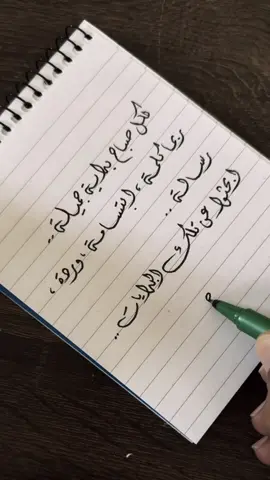 لكل صباح بداية جميلة ..
ربما كلمة ، ابتسامة ، وردة ،
رسالة ..
ابحثوا عن تلك البدايات ..